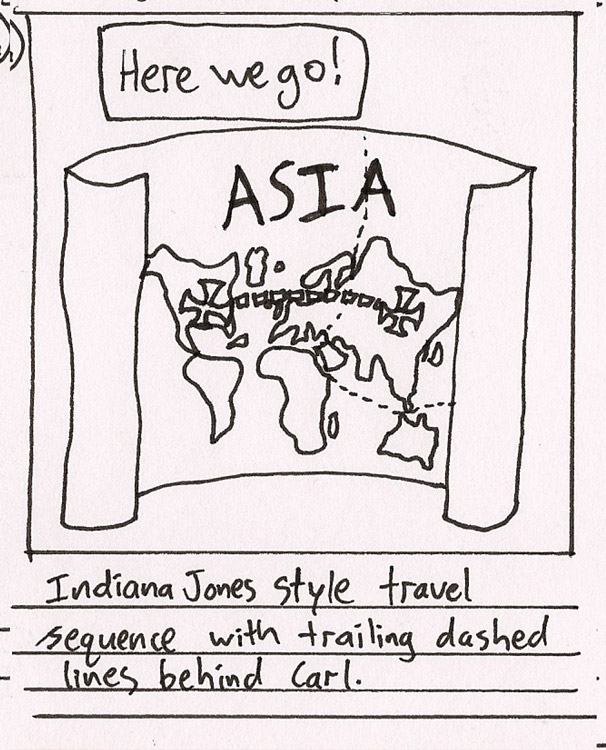 Here we go!
ASIA
Indiana Jones style travel
sequence with trailing dashed
lines behind Carl.